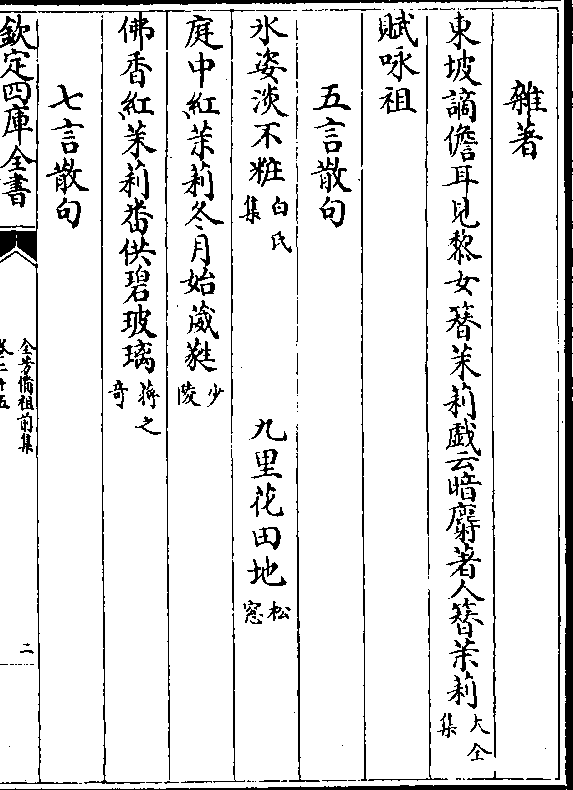 雜著
東坡謫儋耳見黎女簪茉莉戲云暗麝著人簪茉莉大全集
賦咏祖
五言散句
氷姿淡不粧白氏集 九里花田地松窓
庭中紅茉莉冬月始葳蕤少陵
佛香紅茉莉番供碧玻璃蔣之奇
七言散句
欽定四庫全書
全芳備祖前集
卷二十五
二